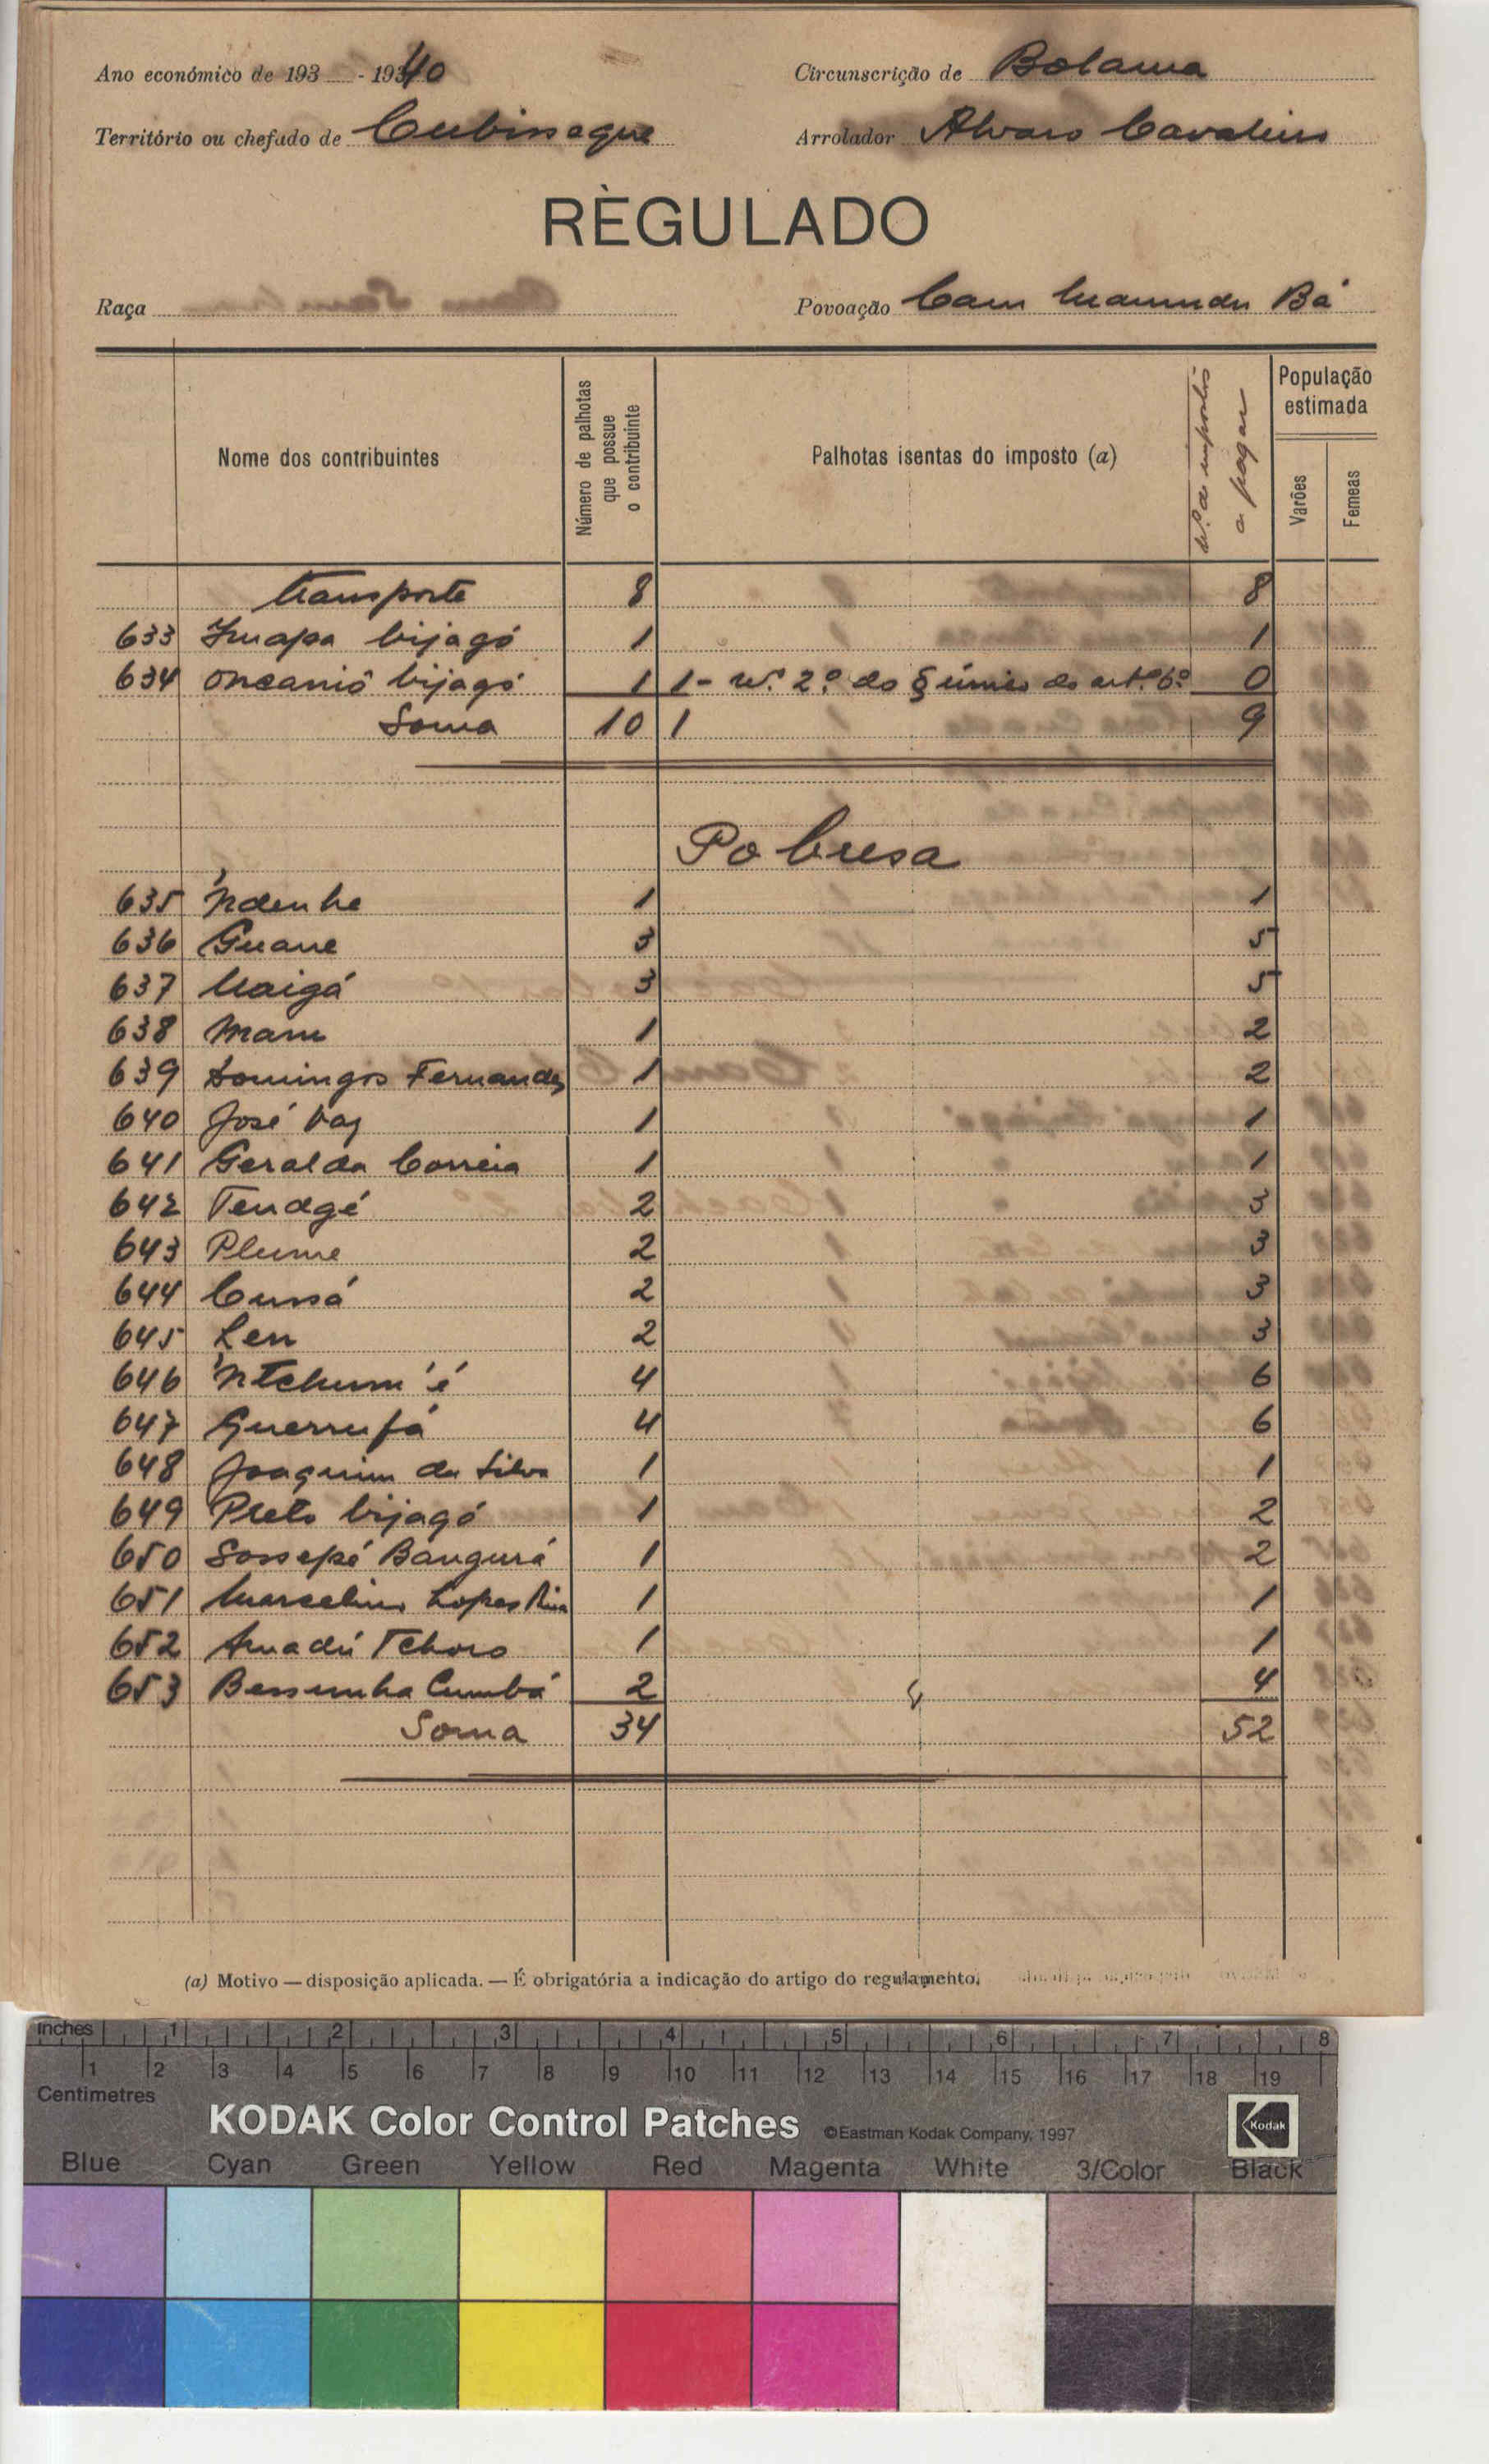 Ano económico de 193 - 1940
Circunscrição de Bolama
Território ou chefado de Cubisseque
Arrolador Alvaro Cavaleiro
RÈGULADO
Raça
Povoação Cam Mamudu Bá
Nome dos contribuintes
Número de palhotas que possue o contribuinte
Palhotas isentas do imposto (a)
N.º de impostos a pagar
População estimada
Varões
Femeas
transporte 8 8
633 Inapa bijagó 1 1
634 Oncanió bijagó 1 1 - Nº. 2.º do § único do artº. 6º 0
Soma 10 1 9
Pobresa
635 'Ndenhe 1 1
636 Guane 3 5
637 Maigá 3 5
638 Manu 1 2
639 Domingos Fernandes 1 2
640 José Vaz 1 1
641 Geralda Correia 1 1
642 Tendgé 2 3
643 Plume 2 3
644 Cussá 2 3
645 Leu 2 3
646 'Ntchum'é 4 6
647 Guerrufá 4 6
648 Joaquim da Silva 1 1
649 Preto bijagó 1 2
650 Sossepé Bangurá 1 2
651 Marcelino Lopes 1 1
652 Amadú Tchoro 1 1
653 Bessunha Cumbá 2 4
Soma 34 52
(a) Motivo — disposição aplicada. — É obrigatória a indicação do artigo do regulamento.
inches 1 2 3 4 5 6 7 8
1 2 3 4 5 6 7 8 9 10 11 12 13 14 15 16 17 18 19
Centimetres
KODAK Color Control Patches ©Eastman Kodak Company, 1997 Kodak
Blue Cyan Green Yellow Red Magenta White 3/Color Black